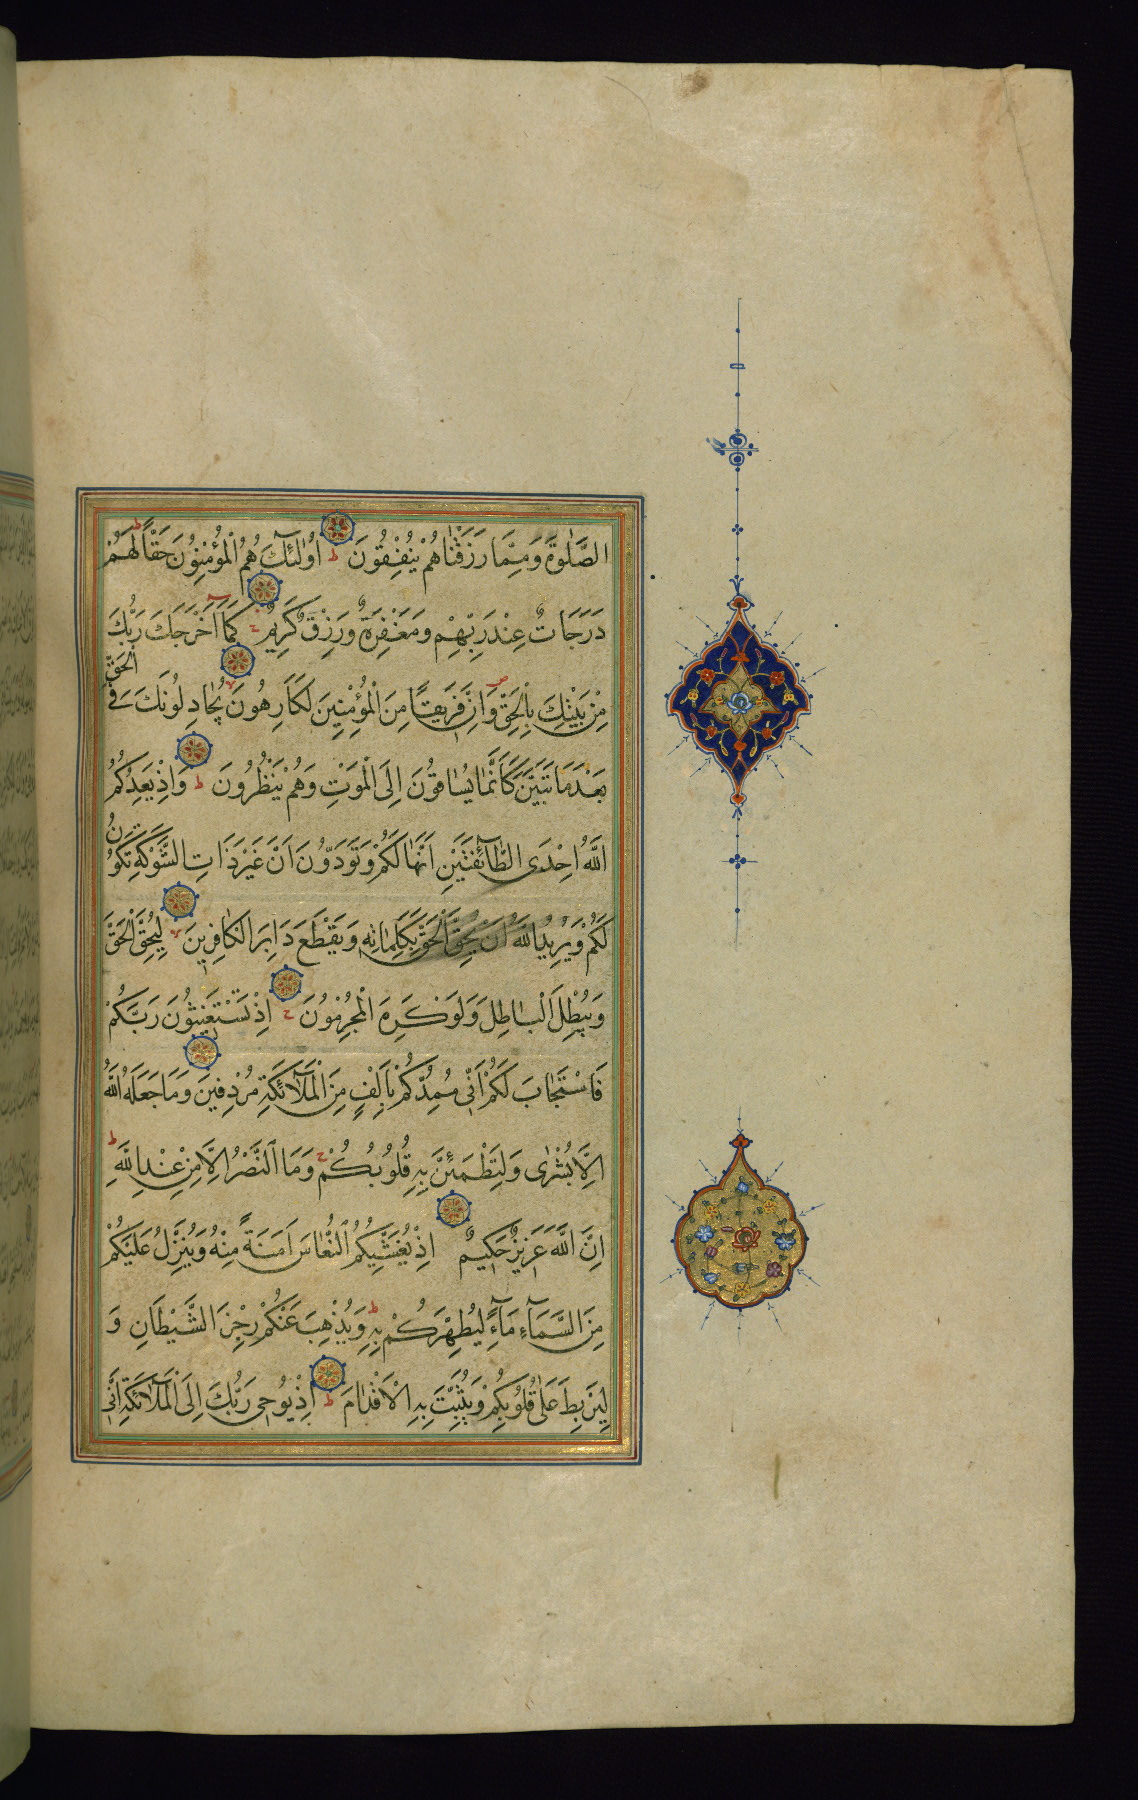 الصَّلٰوةَ وَمِمَّا رَزَقْنَاهُمْ يُنْفِقُونَ ط اُولٰئِكَ هُمُ الْمُؤْمِنُونَ حَقًّا ط لَهُمْ
دَرَجَاتٌ عِنْدَ رَبِّهِمْ وَمَغْفِرَةٌ وَرِزْقٌ كَرِيمٌ ج كَمَا اَخْرَجَكَ رَبُّكَ
مِنْ بَيْتِكَ بِالْحَقِّ ص وَاِنَّ فَرِيقًا مِنَ الْمُؤْمِنِينَ لَكَارِهُونَ لا يُجَادِلُونَكَ فِي الْحَقِّ
بَعْدَ مَا تَبَيَّنَ كَاَنَّمَا يُسَاقُونَ اِلَى الْمَوْتِ وَهُمْ يَنْظُرُونَ ط وَاِذْ يَعِدُكُمُ
اللّٰهُ اِحْدَى الطَّآئِفَتَيْنِ اَنَّهَا لَكُمْ وَتَوَدُّونَ اَنَّ غَيْرَ ذَاتِ الشَّوْكَةِ تَكُونُ
لَكُمْ وَيُرِيدُ اللّٰهُ اَنْ يُحِقَّ الْحَقَّ بِكَلِمَاتِهِ وَيَقْطَعَ دَابِرَ الْكَافِرِينَ لا لِيُحِقَّ الْحَقَّ
وَيُبْطِلَ الْبَاطِلَ وَلَوْ كَرِهَ الْمُجْرِمُونَ ج اِذْ تَسْتَغِيثُونَ رَبَّكُمْ
فَاسْتَجَابَ لَكُمْ اَنِّي مُمِدُّكُمْ بِاَلْفٍ مِنَ الْمَلَآئِكَةِ مُرْدِفِينَ وَمَا جَعَلَهُ اللّٰهُ
اِلَّا بُشْرٰى وَلِتَطْمَئِنَّ بِهِ قُلُوبُكُمْ ج وَمَا النَّصْرُ اِلَّا مِنْ عِنْدِ اللّٰهِ ط
اِنَّ اللّٰهَ عَزِيزٌ حَكِيمٌ اِذْ يُغَشِّيكُمُ النُّعَاسَ اَمَنَةً مِنْهُ وَيُنَزِّلُ عَلَيْكُمْ
مِنَ السَّمَآءِ مَآءً لِيُطَهِّرَكُمْ بِهِ وَيُذْهِبَ عَنْكُمْ رِجْزَ الشَّيْطَانِ وَ
لِيَرْبِطَ عَلٰى قُلُوبِكُمْ وَيُثَبِّتَ بِهِ الْاَقْدَامَ ط اِذْ يُوحِي رَبُّكَ اِلَى الْمَلَآئِكَةِ اَنِّي